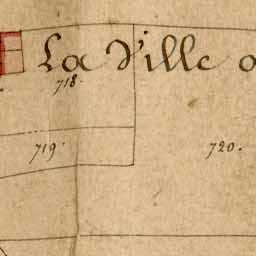 La Ville
718.
719.
720.